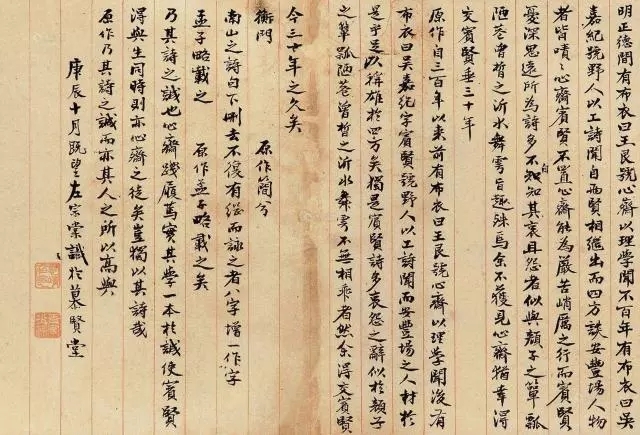 明正德間有布衣曰王艮號心齋以理學聞不百年有布衣曰吳
嘉紀號野人以工詩聞自兩賢相繼出而四方談安豐場人物
者皆嘖〻心齋賓賢不置心齋能為嚴苦峭厲之行而賓賢
憂深思遠所為詩多不自知其哀且怨者似與顏子之簞瓢
陋巷曾晳之沂水舞雩旨趣殊焉余不獲見心齋猶幸得
交賓賢垂三十年
原作自三百年以来前有布衣曰王艮號心齋以理學聞後有
布衣曰吳嘉紀字賓賢號野人以工詩聞而安豐場之人材於
是乎足以称雄於四方矣獨是賓賢詩多哀怨之辭似於顏子
之簞瓢陋巷曾晳之沂水舞雩不無相乖者然余得交賓賢
今三十年之久矣
衡門 原作簡兮
南山之詩句下刪去不復有繼而詠之者八字增一作字
孟子略載之 原作孟子略載之矣
乃其詩之誠也心齋踐履篤實其學一本於誠使賓賢
得與生同時則亦心齋之徒矣豈獨以其詩哉
原作乃其詩之誠而亦其人之所以高與
庚辰十月既望左宗棠識於慕賢堂